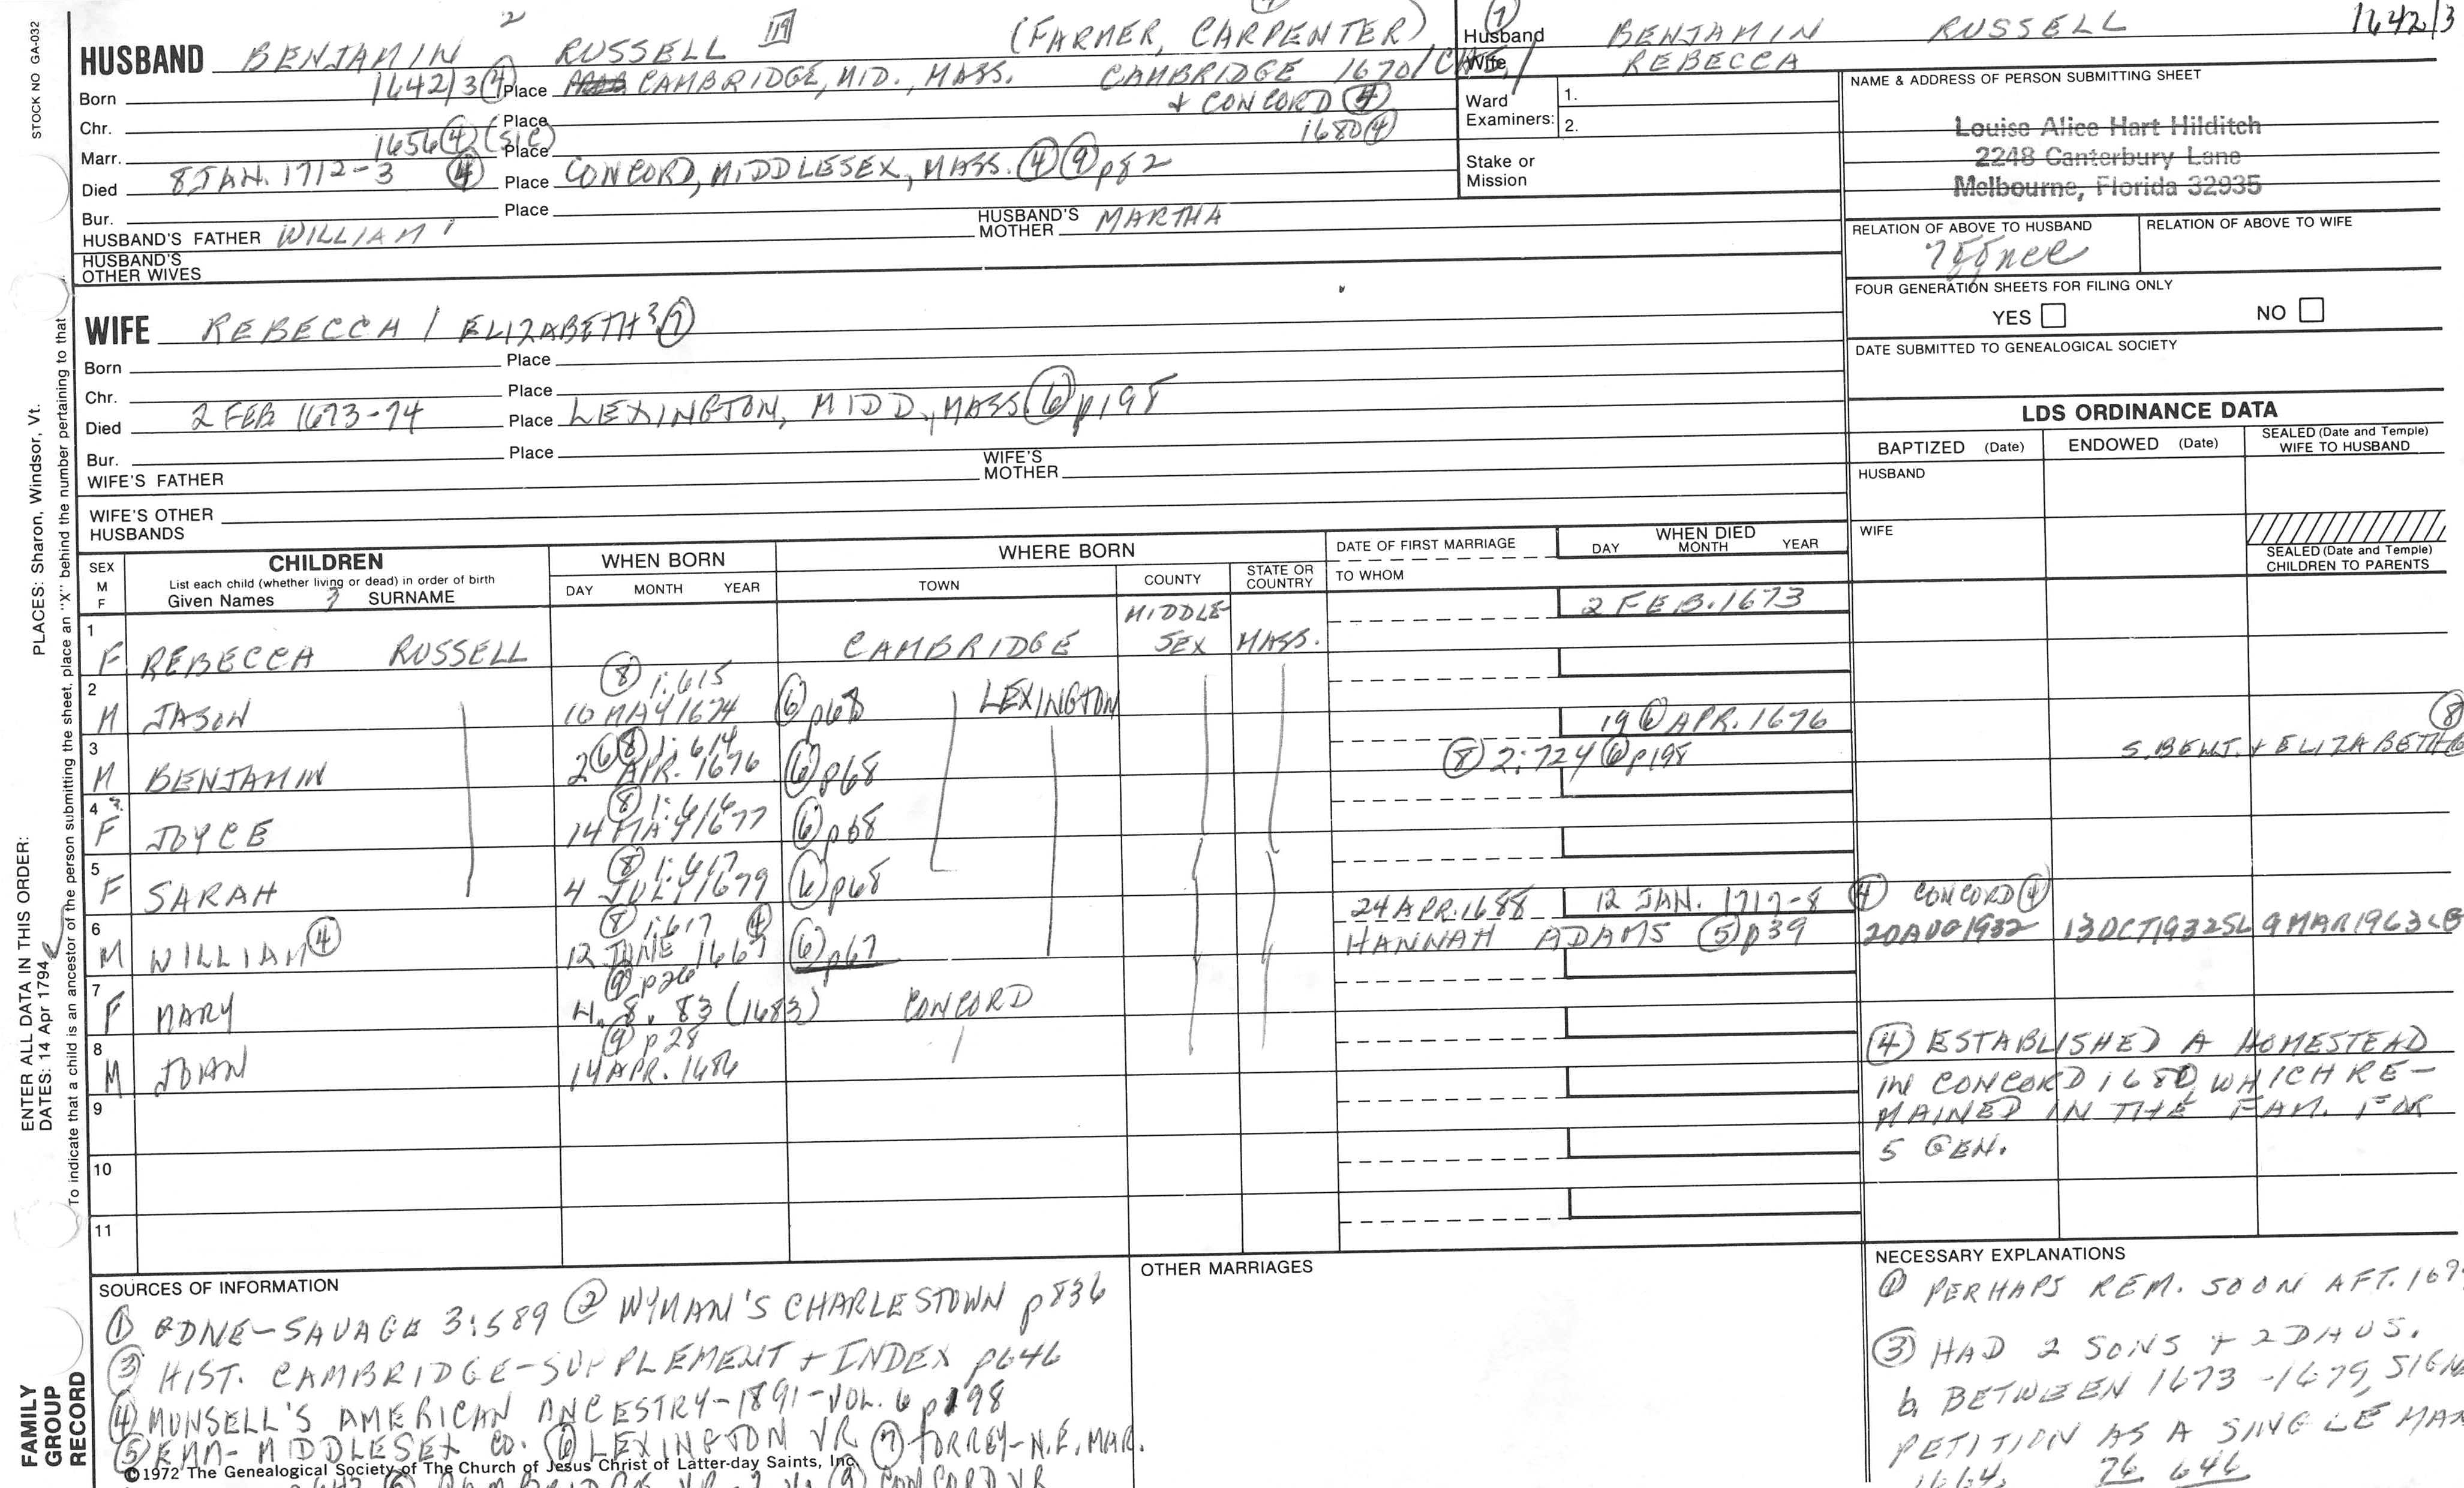 STOCK NO GA-032
HUSBAND BENJAMIN 2 RUSSELL (FARMER, CARPENTER)
Born 1642/3 (4) Place CAMBRIDGE, MID., MASS. CAMBRIDGE 1670/
+ CONCORD (4)
Chr. Place 1680 (4)
Marr. 1656 (4) (SIC) Place
Died 8 JAN. 1712-3 (4) Place CONCORD, MIDDLESEX, MASS. (4) (9) p82
Bur. Place
HUSBAND'S FATHER WILLIAM 1 HUSBAND'S MOTHER MARTHA
HUSBAND'S OTHER WIVES
Husband BENJAMIN RUSSELL 1642/3
Wife REBECCA
Ward Examiners: 1.
2.
Stake or Mission
NAME & ADDRESS OF PERSON SUBMITTING SHEET
Louise Alice Hart Hilditch
2248 Canterbury Lane
Melbourne, Florida 32935
RELATION OF ABOVE TO HUSBAND RELATION OF ABOVE TO WIFE
FOUR GENERATION SHEETS FOR FILING ONLY
YES NO
DATE SUBMITTED TO GENEALOGICAL SOCIETY
WIFE REBECCA / ELIZABETH 3 (7)
Born Place
Chr. Place
Died 2 FEB 1673-74 Place LEXINGTON, MIDD., MASS. (6) p198
Bur. Place
WIFE'S FATHER WIFE'S MOTHER
WIFE'S OTHER HUSBANDS
LDS ORDINANCE DATA
BAPTIZED (Date) ENDOWED (Date) SEALED (Date and Temple) WIFE TO HUSBAND
HUSBAND
WIFE
SEALED (Date and Temple) CHILDREN TO PARENTS
SEX M F CHILDREN
List each child (whether living or dead) in order of birth
Given Names 3 SURNAME
WHEN BORN DAY MONTH YEAR
WHERE BORN TOWN COUNTY STATE OR COUNTRY
DATE OF FIRST MARRIAGE
TO WHOM
WHEN DIED DAY MONTH YEAR
1 F REBECCA RUSSELL CAMBRIDGE MIDDLE-SEX MASS. 2 FEB. 1673
2 M JASON (8) 1:615 10 MAY 1674 (6) p68 LEXINGTON
3 M BENJAMIN (8) 1:614 2 (6) APR. 1676 (6) p68 19 (6) APR. 1676
(8) 2:724 (6) p198 S. BENJ. + ELIZABETH (8)
4 F JOYCE (8) 1:616 14 MAY 1677 (6) p68
5 F SARAH (8) 1:617 4 JULY 1679 (6) p68
6 M WILLIAM (4) (8) 1:617 (4) 12 JUNE 1667 (6) p67 24 APR. 1688 12 JAN. 1717-8 (4) CONCORD (4)
HANNAH ADAMS (5) p39 20 AUG 1932 13 OCT 1932 SL 9 MAR 1963
7 F MARY (9) p26 4. 8. 83 (1683) CONCORD
8 M JOHN (9) p28 14 APR. 1686
9
10
11
(4) ESTABLISHED A HOMESTEAD
IN CONCORD 1680, WHICH RE-
MAINED IN THE FAM. FOR
5 GEN.
SOURCES OF INFORMATION
(1) GDNE-SAVAGE 3:589 (2) WYMAN'S CHARLESTOWN p836
(3) HIST. CAMBRIDGE-SUPPLEMENT + INDEX p646
(4) MUNSELL'S AMERICAN ANCESTRY-1891-VOL. 6 p198
(5) EMM- MIDDLESEX CO. (6) LEXINGTON VR (7) TORREY-N.E. MAR.
©1972 The Genealogical Society of The Church of Jesus Christ of Latter-day Saints, Inc.
(8) CAMBRIDGE VR (9) CONCORD VR
OTHER MARRIAGES
NECESSARY EXPLANATIONS
(1) PERHAPS REM. SOON AFT.
(3) HAD 2 SONS + 2 DAUS.
b. BETWEEN 1673-1679, SIGN
PETITION AS A SINGLE MAN
1664. 76 646
PLACES: Sharon, Windsor, Vt.
ENTER ALL DATA IN THIS ORDER:
DATES: 14 Apr 1794
To indicate that a child is an ancestor of the person submitting the sheet, place an "X" behind the number pertaining to that
FAMILY GROUP RECORD